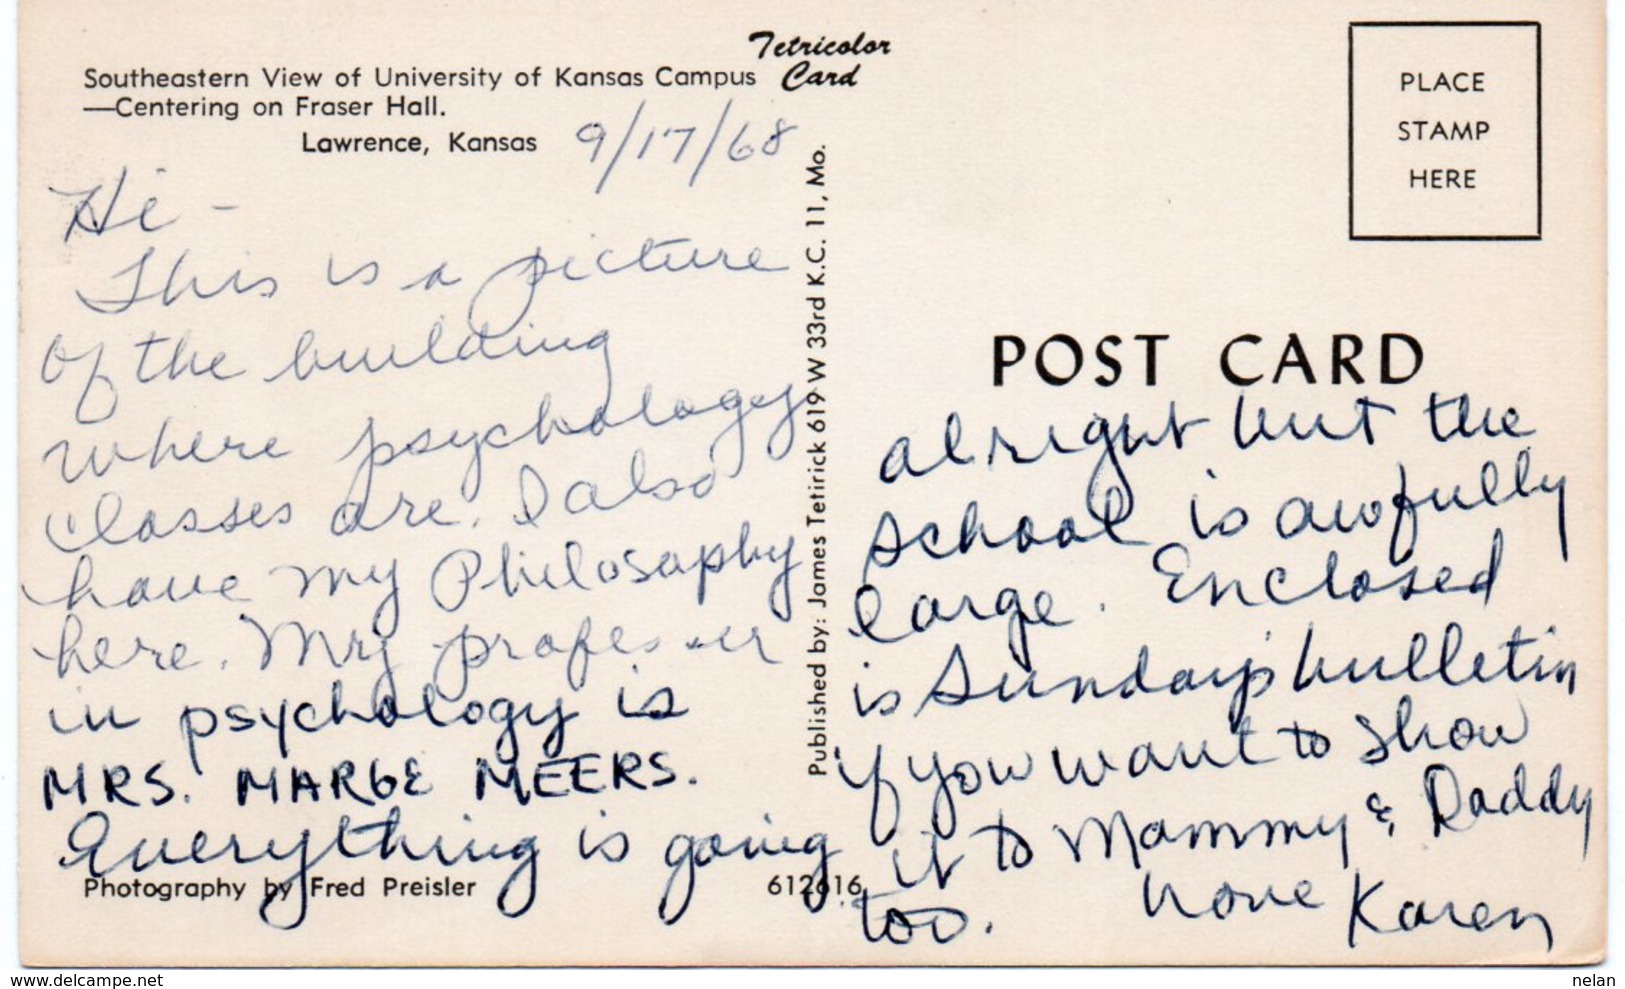 Tetricolor
Southeastern View of University of Kansas Campus Card
—Centering on Fraser Hall.
Lawrence, Kansas 9/17/68
Hi -
This is a picture
of the building
where psychology
classes are. I also
have my Philosophy
here. My professor
in psychology is
MRS. MARGE MEERS.
Everything is going
Photography by Fred Preisler
612616
Published by: James Tetirick 619 W 33rd K.C. 11, Mo.
PLACE
STAMP
HERE
POST CARD
alright but the
school is awfully
large. Enclosed
is Sunday's bulletin
if you want to show
it to Mommy & Daddy
too. Love Karen
delcampe.net
nelan